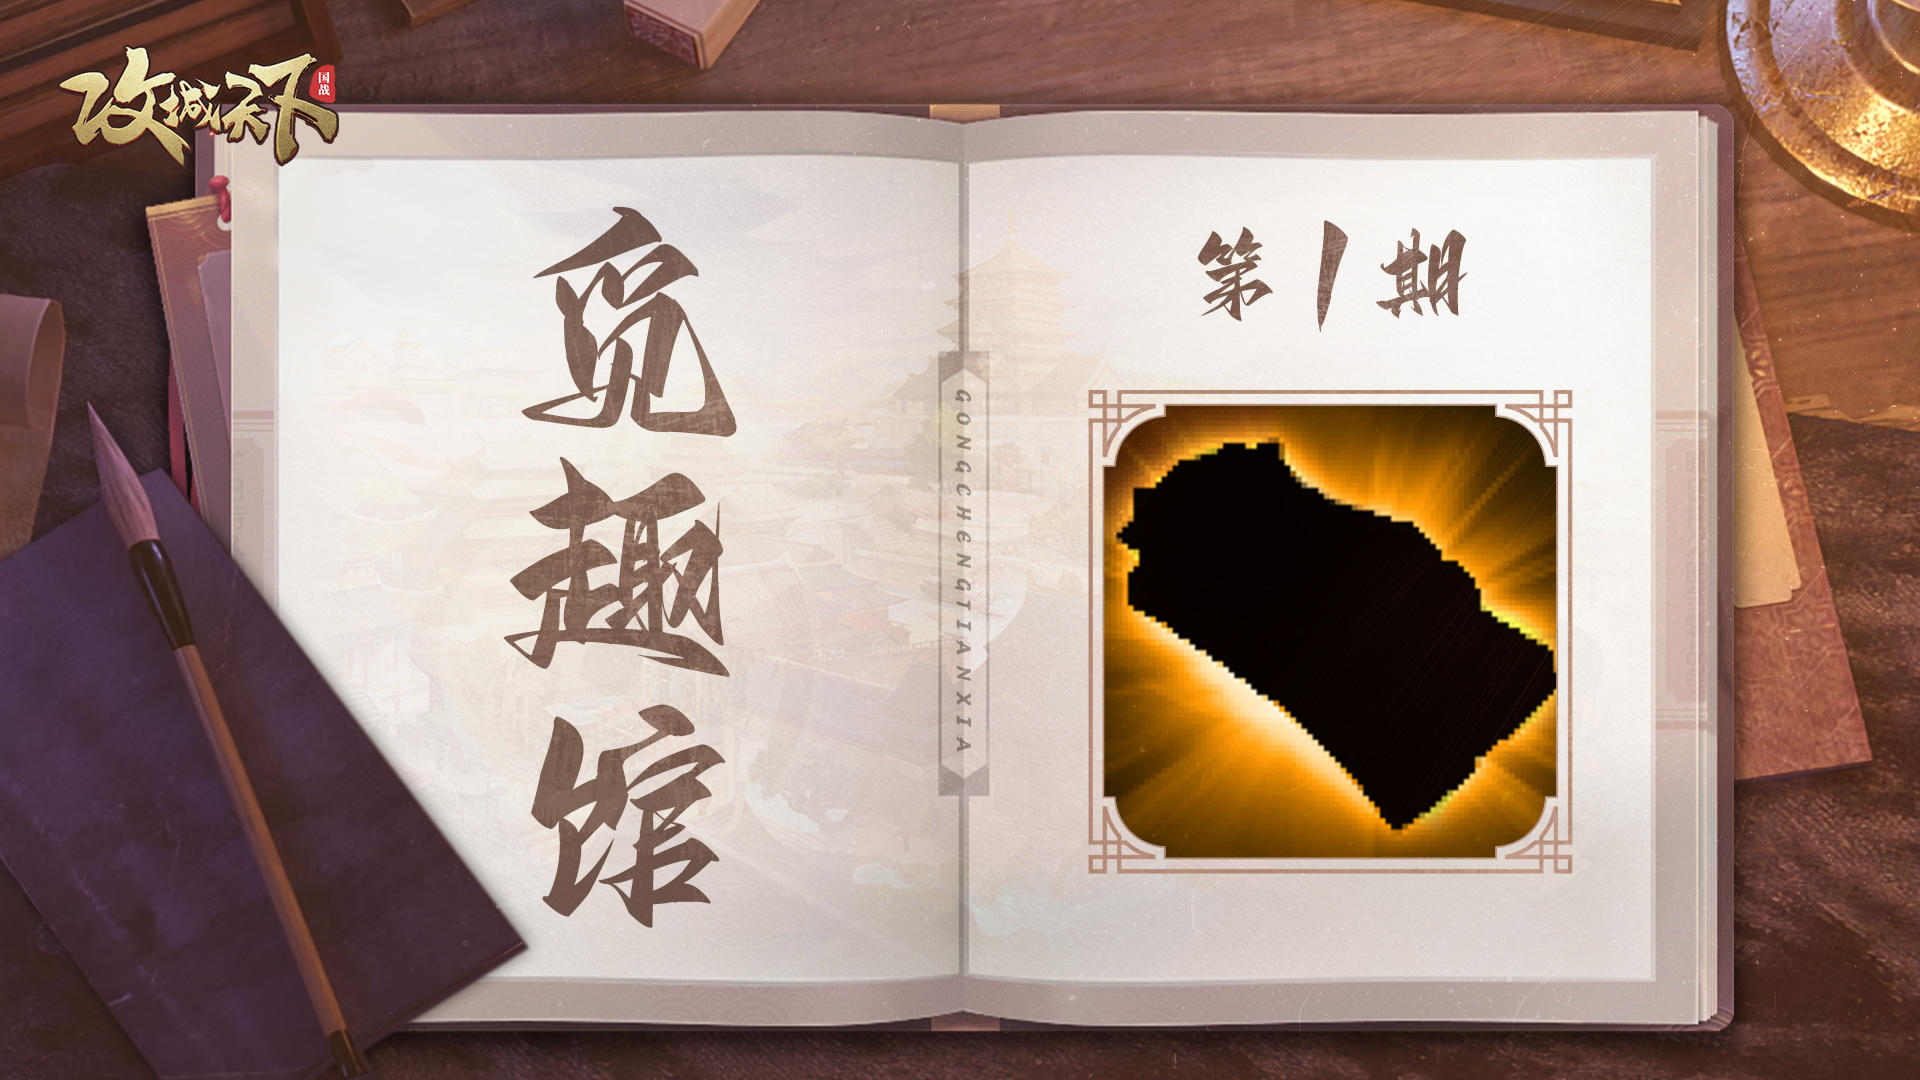 攻城天下
国战
觅趣馆
GONGCHENGTIANXIA
第1期